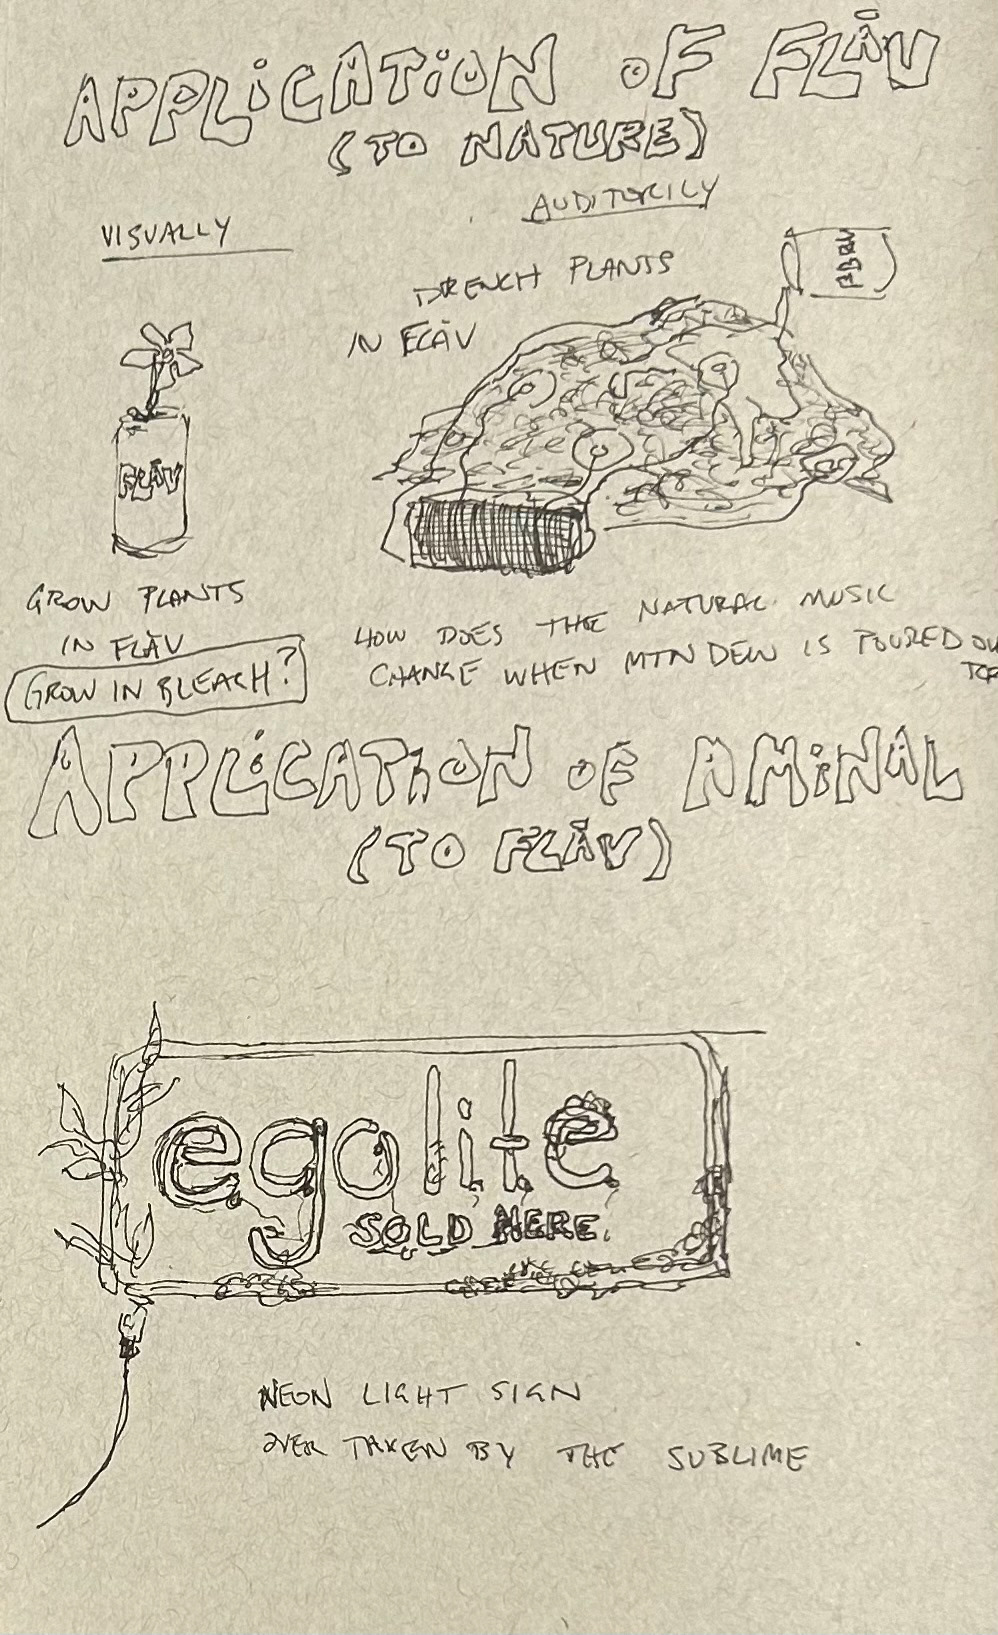 APPLiCATiON OF FLÄV
(TO NATURE)
VISUALLY
AUDITORILY
DRENCH PLANTS
IN FLÄV
FLÄV
GROW PLANTS
IN FLÄV
GROW IN BLEACH?
HOW DOES THE NATURAL MUSIC
CHANGE WHEN MTN DEW IS POURED ON
TOP
APPLiCATiON OF AMiNAL
(TO FLÄV)
egolite
SOLD HERE.
NEON LIGHT SIGN
OVER TAKEN BY THE SUBLIME